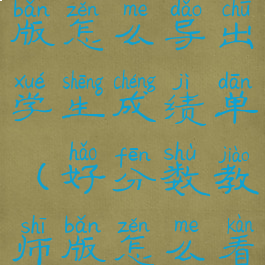 bǎn zěn me dǎo chū
版怎么导出
xué shēng chéng jì dān
学生成绩单
hǎo fēn shù jiào
（好分数教
shī bǎn zěn me kàn
师版怎么看